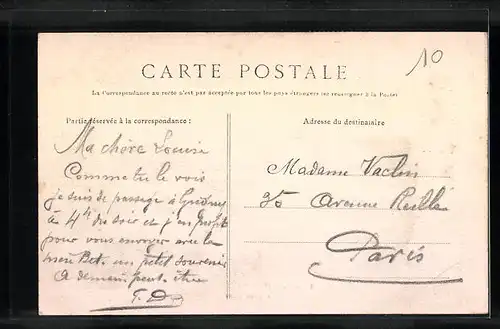 10
CARTE POSTALE
La Correspondance au recto n'est pas acceptée par tous les pays étrangers (se renseigner à la Poste)
Partie réservée à la correspondance :
Adresse du destinataire
Ma chère Louise
Comme tu le vois
je suis de passage à
à 4h du soir et j'en profite
pour vous envoyer avec la
mon un petit souvenir
A demain peut-être
Madame
35 Avenue
Paris